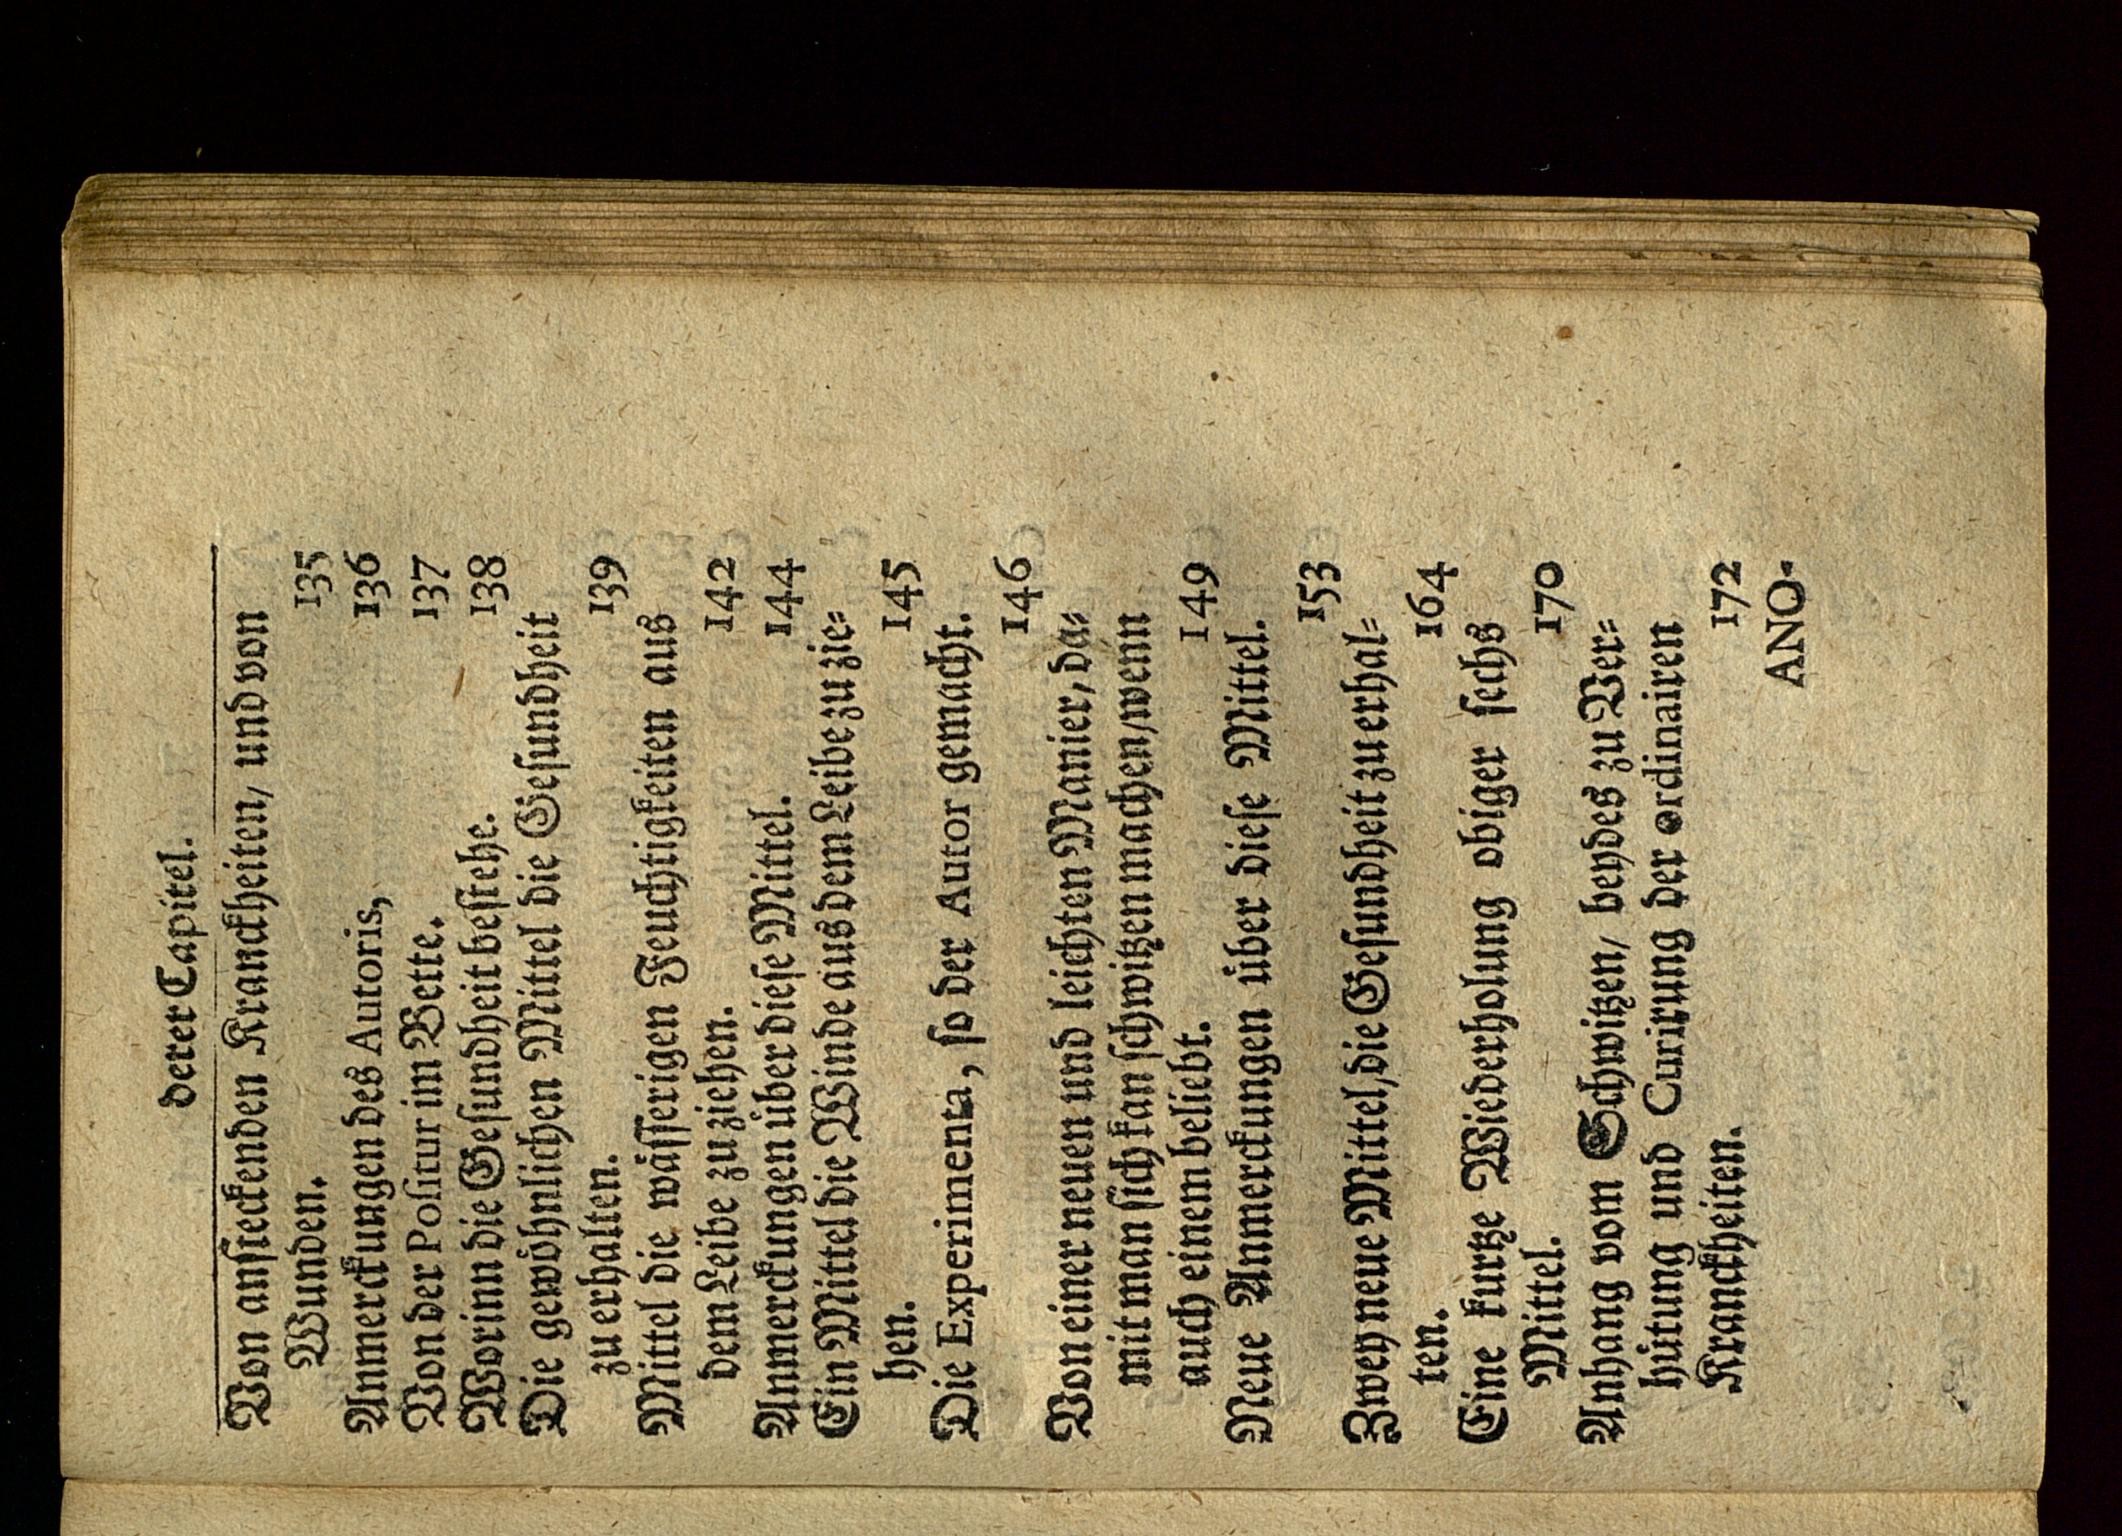 derer Capitel.
Von ansteckenden Kranckheiten, und von
Wunden. 135
Anmerckungen des Autoris, 136
Von der Positur im Bette. 137
Worinn die Gesundheit bestehe. 138
Die gewöhnlichen Mittel die Gesundheit
zu erhalten. 139
Mittel die wässerigen Feuchtigkeiten aus
dem Leibe zu ziehen. 142
Anmerckungen über diese Mittel. 144
Ein Mittel die Winde aus dem Leibe zu zie=
hen. 145
Die Experimenta, so der Autor gemacht.
146
Von einer neuen und leichten Manier, da=
mit man sich kan schwitzen machen/wenn
auch einem beliebt. 149
Neue Anmerckungen über diese Mittel.
153
Zwey neue Mittel/die Gesundheit zu erhal=
ten. 164
Eine kurtze Wiederholung obiger sechs
Mittel. 170
Anhang vom Schwitzen/ beydes zu Ver=
hütung und Curirung der ordinairen
Kranckheiten. 172
ANO-